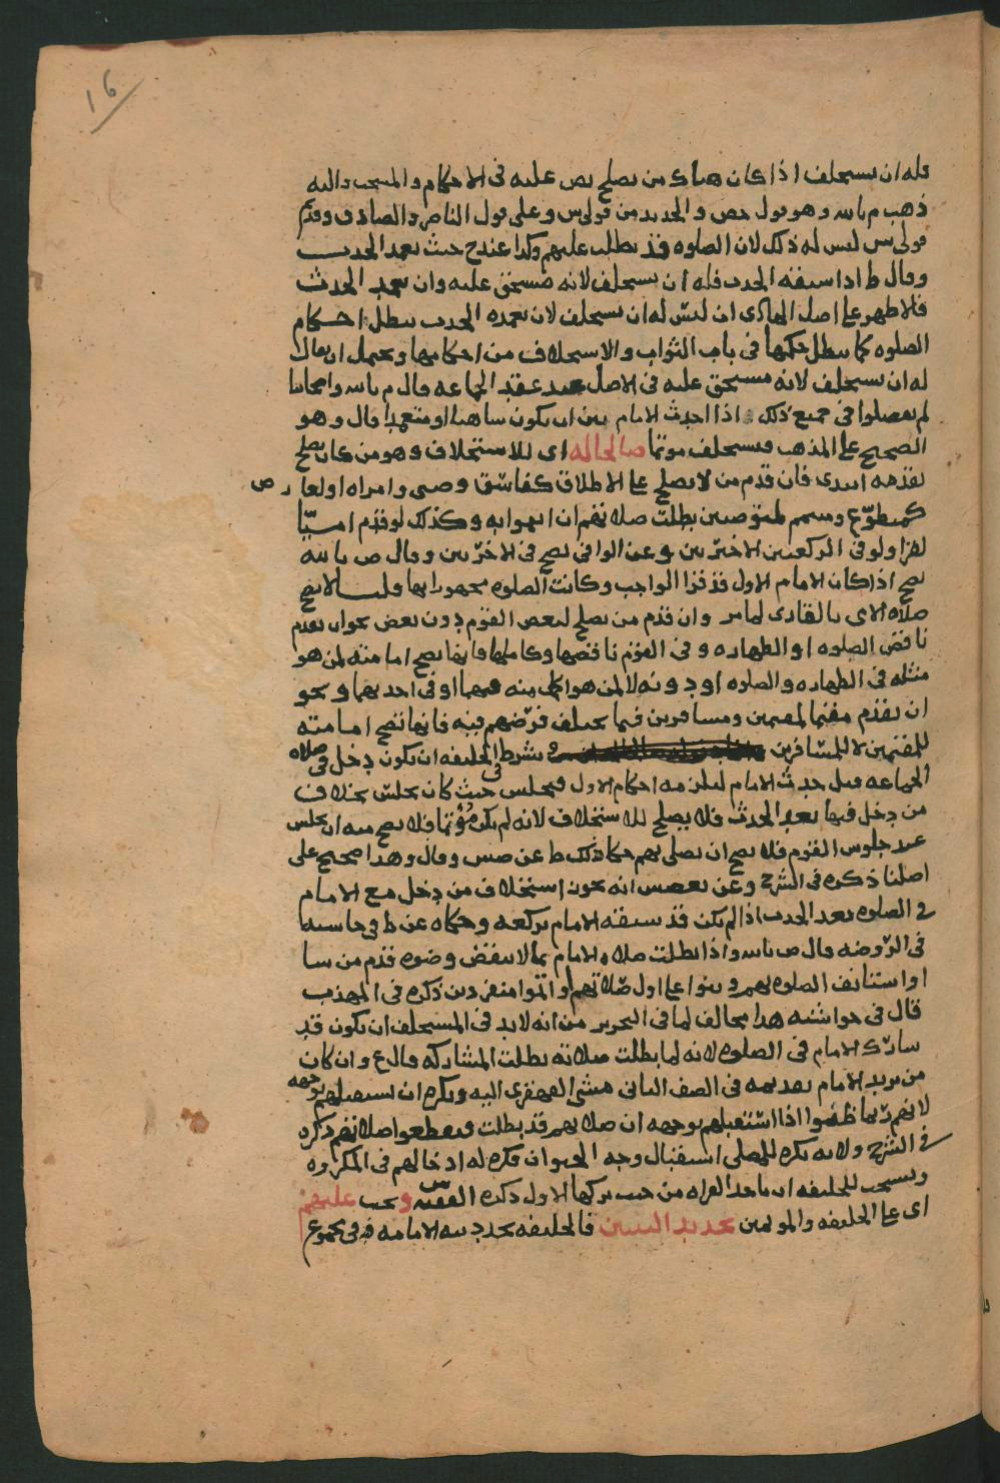 16
فله ان يستخلف اذا كان هناك من يصلح نص عليه في الاحكام والمنتخب واليه
ذهب م بالله وهو قول حص والجديد من قولي س وعلى قول الناصر والصادق وقديم
قولي س ليس له ذلك لان الصلوه قد بطلت عليهم وكذا عند ح حيث تعمد الحدث
وقال ط اذا سبقه الحدث فله ان يستخلف لانه مستحق عليه وان تعمد الحدث
فالاظهر على اصل الهادي ان ليس له ان يستخلف لان تعمده الحدث يبطل احكام
الصلوه كما يبطل حكمها في باب الثواب والاستخلاف من احكامها ويحتمل ان يقال
له ان يستخلف لانه مستحق عليه في الاصل عند عقد الجماعه قال م بالله واصحابنا
لم يفصلوا في جميع ذلك اذا احدث الامام بين ان يكون ساهيا او متعمدا قال وهو
الصحيح على المذهب فيستخلف مؤتما صالحا له اي للاستخلاف وهو من كان يصلح
تقدمه ابتدى فان قدم من لا يصلح على الاطلاق كفاسق وصبي وامراه او لعارض
كمتطوع ومتيمم لمتوضين بطلت صلاتهم ان ايتموا به وكذلك لو قدم اميّا
لقرا ولو في الركعتين الاخيرتين وعن الوافي تصح في الاخرتين وقال ص بالله
تصح اذا كان الامام الاول قد قرا الواجب وكانت الصلوه مجهورا بها قلنا لا تصح
صلاه الامي بالقاري لما مر وان قدم من يصلح لبعض القوم دون بعض نحو ان يقدم
ناقص الصلوه او الطهاره وفي القوم ناقصها وكاملها فانها تصح امامته لمن هو
مثله في الطهاره والصلوه او دونه لا لمن هو اكمل منه فيهما او في احديهما ونحو
ان يقدم مقيما لمقيمين ومسافرين فيما يختلف فرضهم فيه فانها تصح امامته
للمقيمين لا للمسافرين وشرط الخليفه ان يكون دخل في صلاه
الجماعه قبل حدث الامام ليلزمه احكام الاول فيجلس حيث كان يجلس بخلاف
من دخل فيها بعد الحدث فلا يصلح للاستخلاف لانه لم يكن مؤتما فلا يصح منه ان يجلس
عند جلوس القوم فلا يصح ان يصلي بهم حكا ذلك ط عن صس وقال وهذا صحيح على
اصلنا ذكره في الشرح وعن بعضهم انه يجوز استخلاف من دخل مع الامام
في الصلوه بعد الحدث اذا لم يكن قد سبقه الامام بركعه وحكاه عن ط في حاشيه
في الروضه قال ص بالله واذا بطلت صلاه الامام بما لا ينقض وضوه قدم من شا
او استانف الصلوه بهم وبنوا على اول صلاتهم او اتموا منفردين ذكره في المهذب
قال في حواشيه هذا مخالف لما في التحرير من انه لا بد في المستخلف ان يكون قد
شارك الامام في الصلوه لانه لما بطلت صلاته بطلت المشاركه قال ع وان كان
من يريد الامام تقديمه في الصف الثاني مشى القهقرى اليه ويكره ان يستقبلهم بوجهه
لانهم ربما ظنوا اذا استقبلهم بوجهه ان صلاتهم قد بطلت فيقطعوا صلاتهم ذكره
في الشرح ولانه يكره للمصلي استقبال وجه الحيوان فكره له ادخالهم في المكروه
ويستحب للخليفه ان ياخذ القراه من حيث تركها الاول ذكره الفقيه س ويجب عليهم
اي على الخليفه والمؤتمين تجديد النيتين فالخليفه يجدد نيه الامامه في مجموع